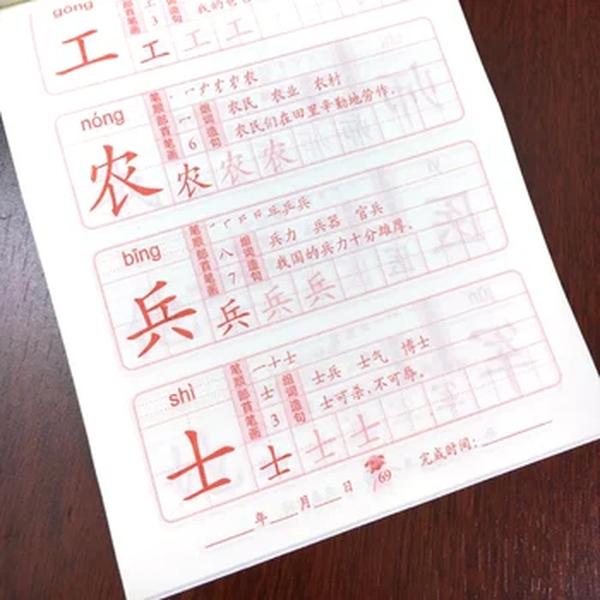 gōng
3
我的爸
工 工 工 工
nóng
笔顺 丶 一 ナ 才 农 农
部首 一 组词 农民 农业 农村
笔画 6 造句 农民们在田里辛勤地劳作。
农 农 农 农
bīng
笔顺
部首 八 组词 兵力 兵器 官兵
笔画 7 造句 我国的兵力十分雄厚。
兵 兵 兵 兵
shì
笔顺 一 十 士
部首 士 组词 士兵 士气 博士
笔画 3 造句 士可杀,不可辱。
士 士 士 士
69 完成时间:
年 月 日